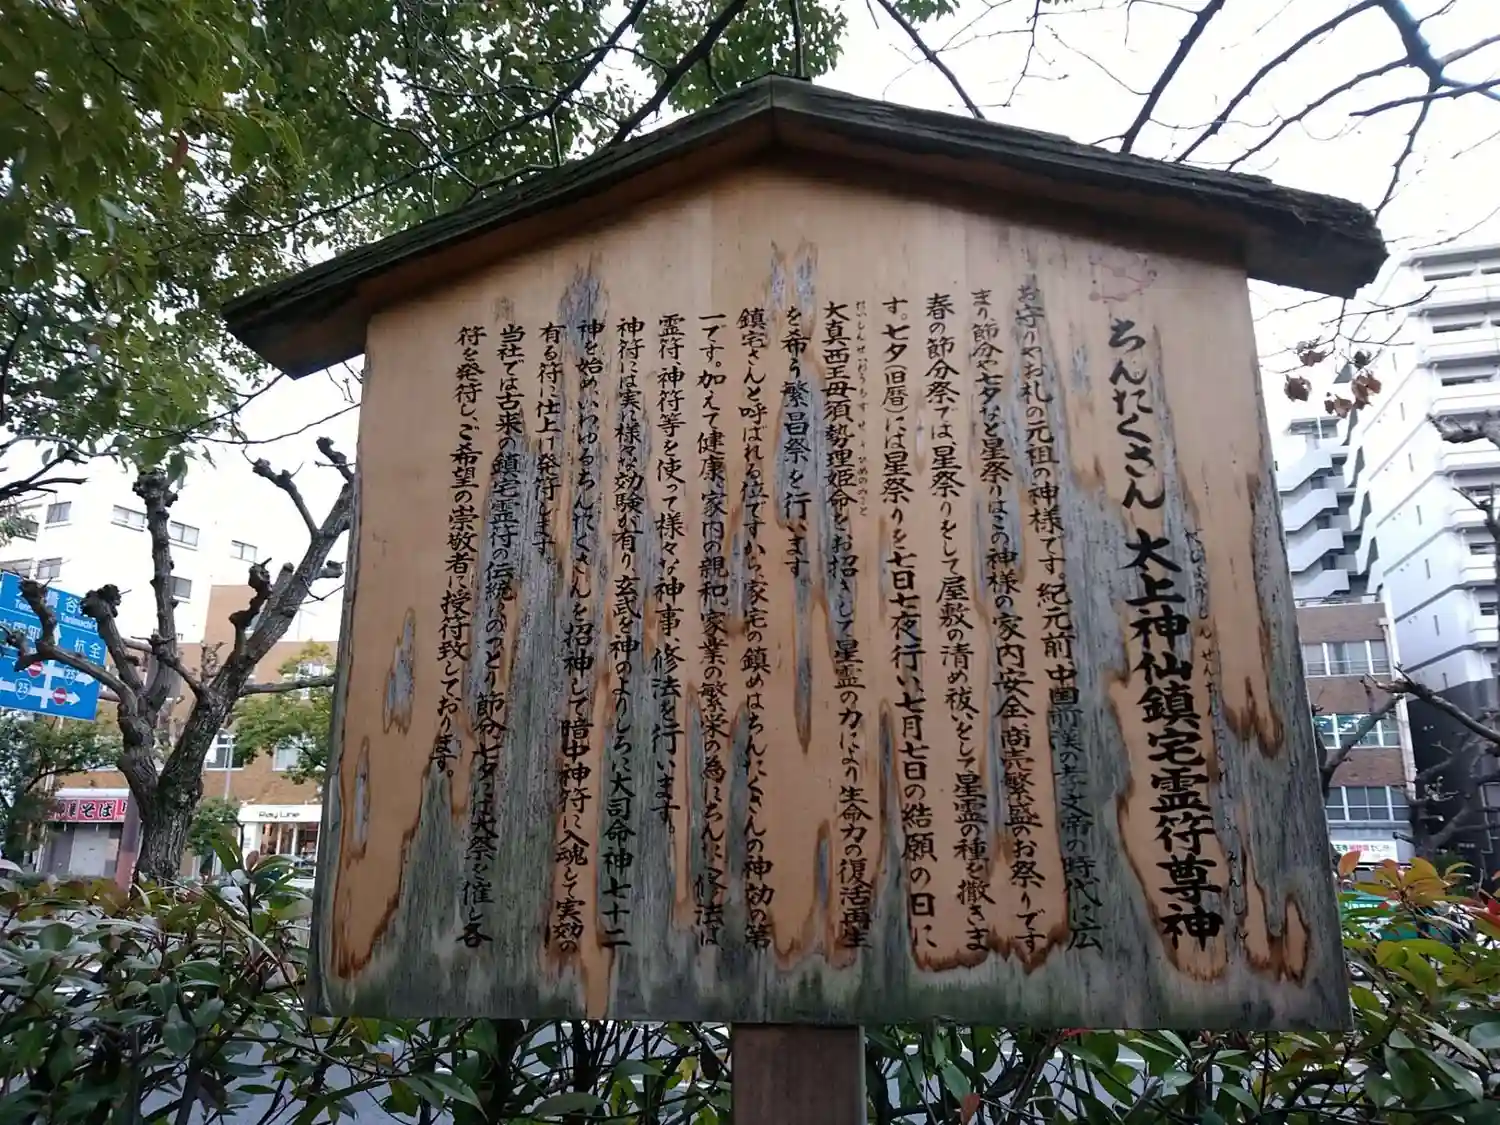 ちんたくさん 太上神仙鎮宅霊符尊神
お守りやお札の元祖の神様です。紀元前、中国前漢の孝文帝の時代に広
まり節分や七夕など星祭りはこの神様の家内安全、商売繁盛のお祭りです
春の節分祭では、星祭りをして屋敷の清め祓いをして星霊の種を撒きま
す。七夕(旧暦)には星祭りを七日七夜行い、七月七日の結願の日に
大真西王母須勢理姫命をお招きして星霊の力により生命力の復活再生
を希う繁昌祭を行います
鎮宅さんと呼ばれる位ですから家宅の鎮めはちんたくさんの神効の第
一です。加えて健康、家内の親和、家業の繁栄の為にちんたく修法は
霊符神符等を使って様々な神事、修法を行います。
神符には実に様々な効験が有り玄武を神のよりしろに大司命神七十二
神を始め、いわゆるちんたくさんを招神して暗中神符に入魂して実効の
有る符に仕上げ発符します
当社では古来の鎮宅霊符の伝統にのっとり節分、七夕には大祭を催し各
符を発符し、ご希望の崇敬者に授符致しております。
Tanimachi
25
25
そば
Ray Line